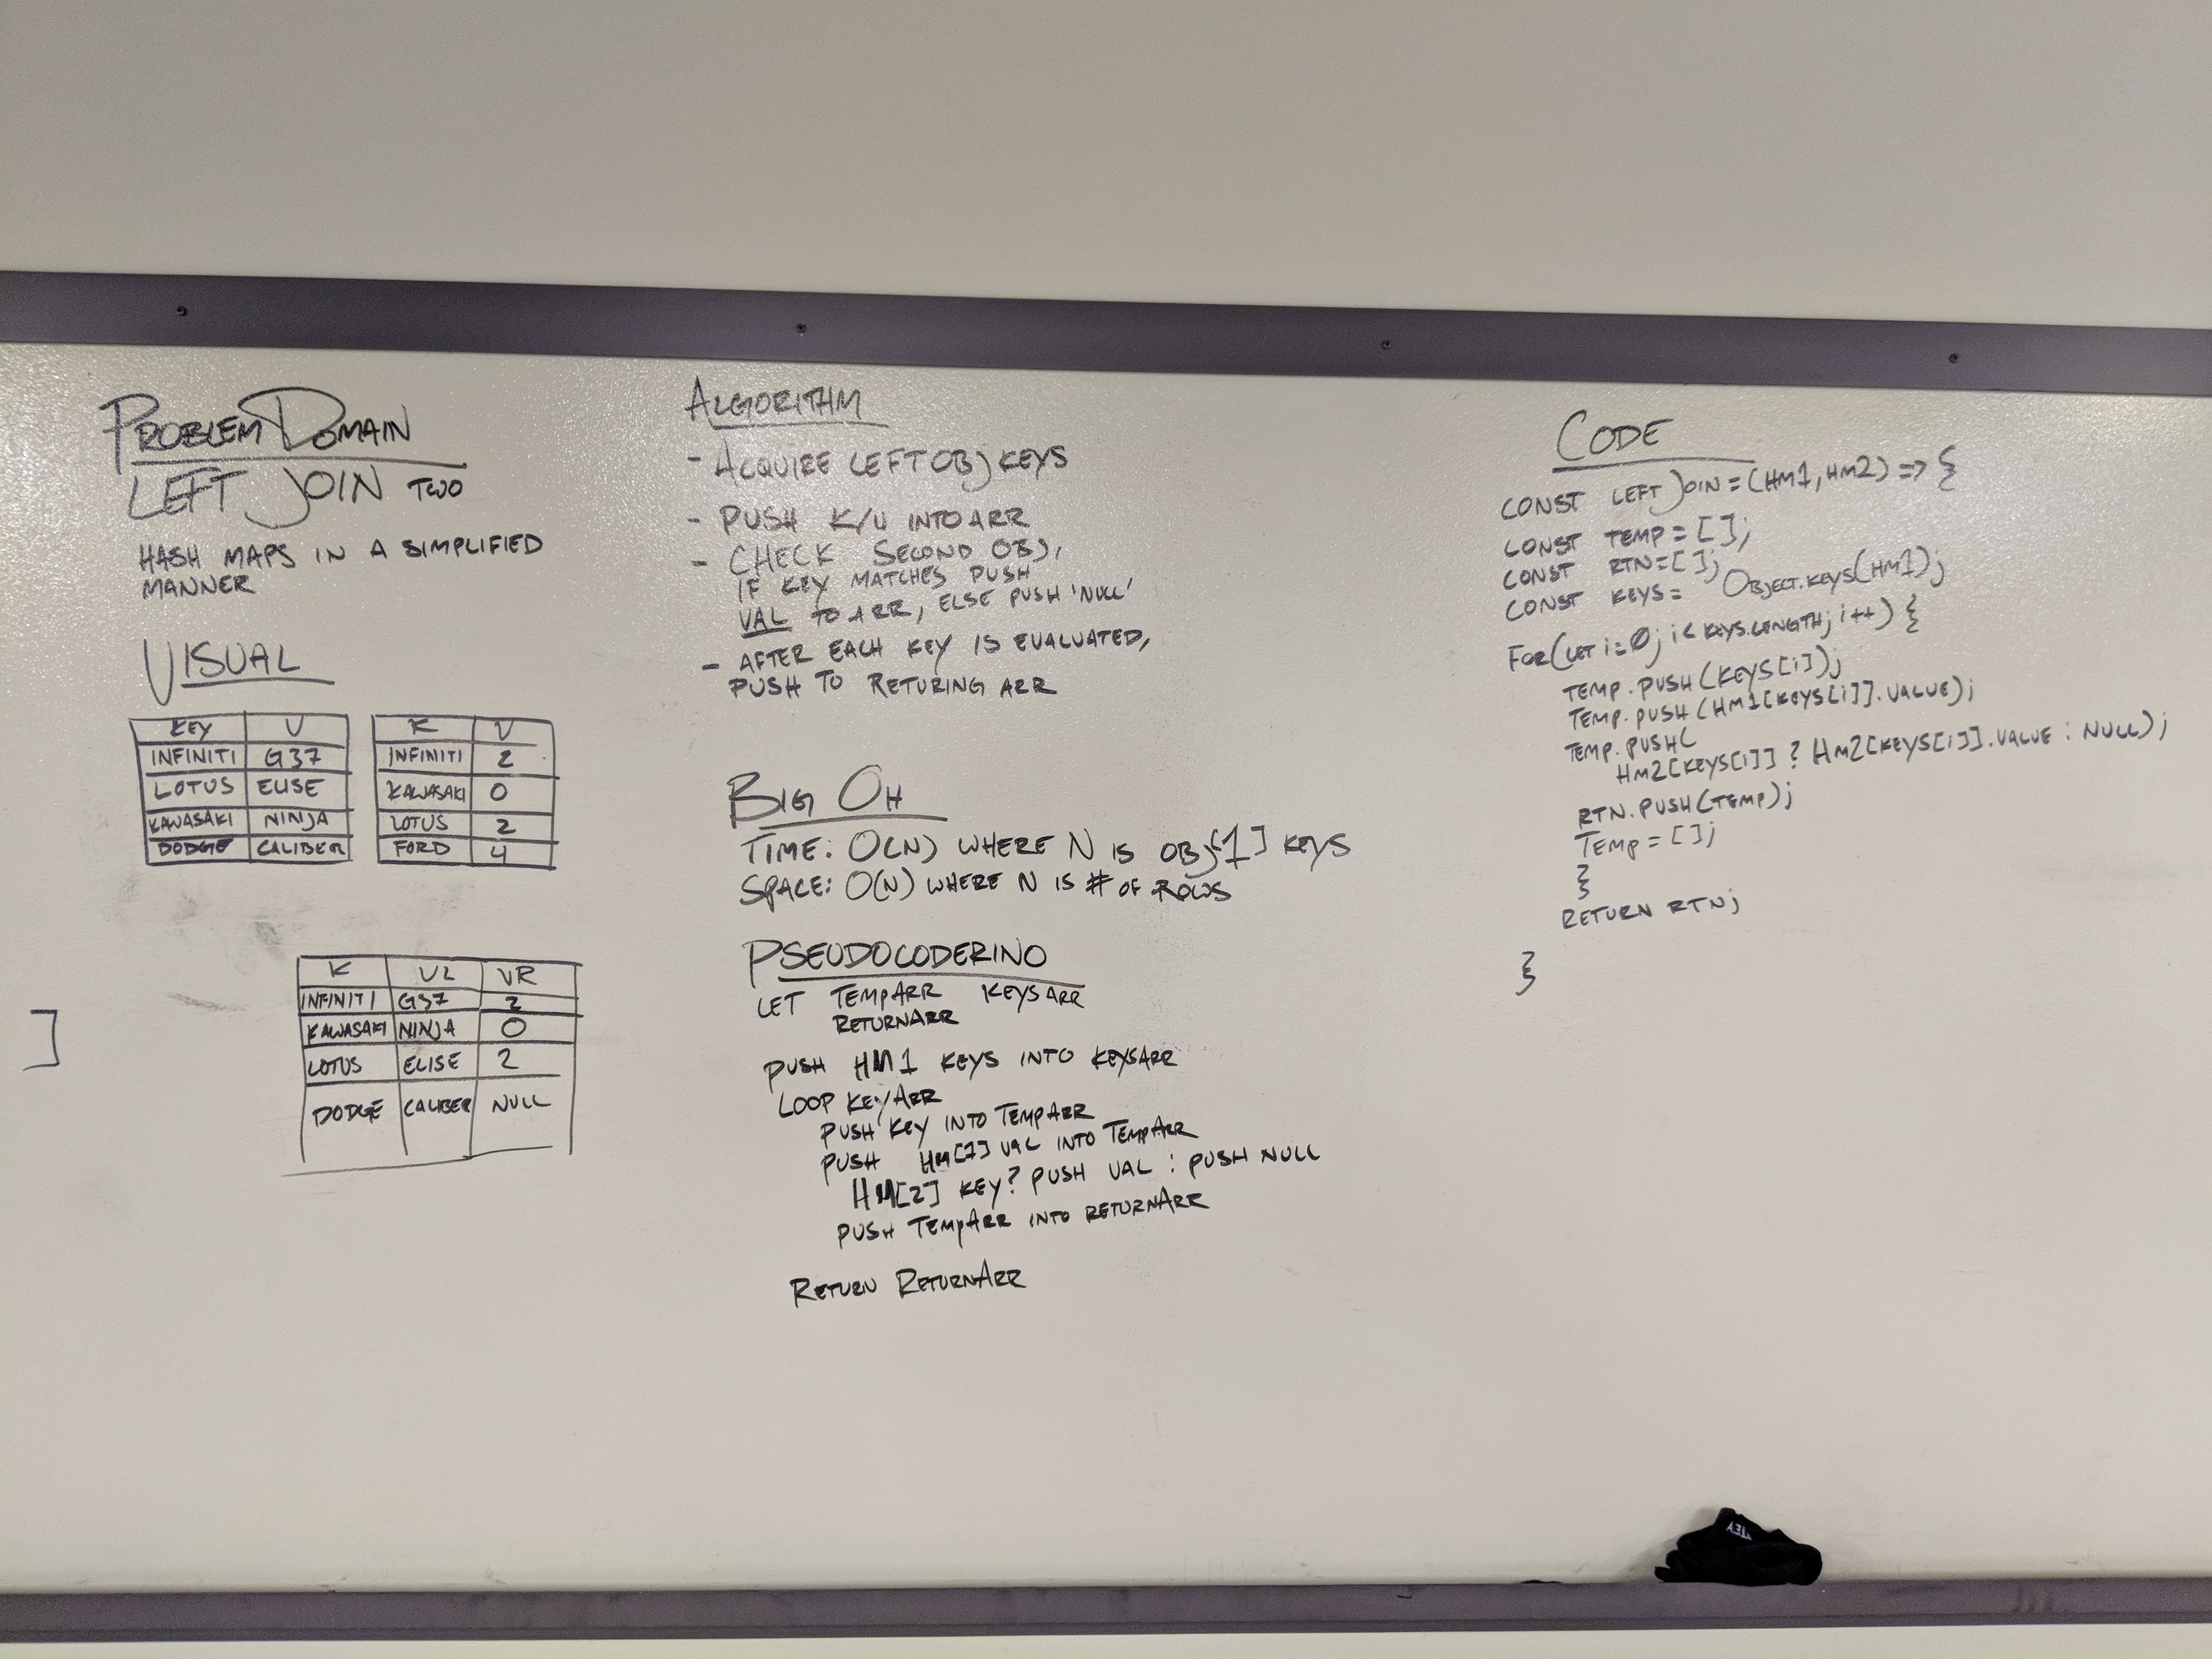 PROBLEM DOMAIN
LEFT JOIN TWO
HASH MAPS IN A SIMPLIFIED
MANNER
VISUAL
KEY V
INFINITI G37
LOTUS ELISE
KAWASAKI NINJA
DODGE CALIBER
K V
INFINITI 2
KAWASAKI 0
LOTUS 2
FORD 4
K VL VR
INFINITI G37 2
KAWASAKI NINJA 0
LOTUS ELISE 2
DODGE CALIBER NULL
]
ALGORITHM
- ACQUIRE LEFT OBJ KEYS
- PUSH K/V INTO ARR
- CHECK SECOND OBJ,
IF KEY MATCHES PUSH
VAL TO ARR, ELSE PUSH 'NULL'
- AFTER EACH KEY IS EVALUATED,
PUSH TO RETURING ARR
BIG OH
TIME: O(N) WHERE N IS OBJ[1] KEYS
SPACE: O(N) WHERE N IS # OF ROWS
PSEUDOCODERINO
LET TEMPARR KEYSARR
RETURNARR
PUSH HM1 KEYS INTO KEYSARR
LOOP KEYARR
PUSH KEY INTO TEMPARR
PUSH HM[1] VAL INTO TEMPARR
HM[2] KEY? PUSH VAL : PUSH NULL
PUSH TEMPARR INTO RETURNARR
RETURN RETURNARR
CODE
CONST LEFTJOIN = (HM1, HM2) => {
CONST TEMP = [];
CONST RTN = [];
CONST KEYS = OBJECT.KEYS(HM1);
FOR(LET i=0; i< KEYS.LENGTH; i++) {
TEMP.PUSH(KEYS[i]);
TEMP.PUSH(HM1[KEYS[i]].VALUE);
TEMP.PUSH(
HM2[KEYS[i]] ? HM2[KEYS[i]].VALUE : NULL);
RTN.PUSH(TEMP);
TEMP = [];
}
RETURN RTN;
}